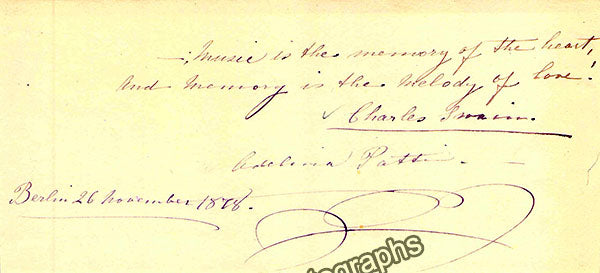 Music is the memory of the heart,
And Memory is the Melody of love!
Charles Swain.
Adelina Patti
Berlin 26 November 1878.